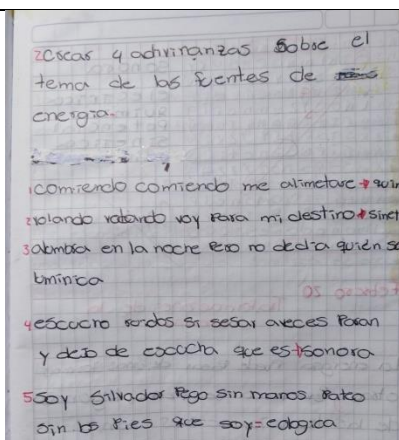 2crear 4 adivinanzas sobre el
tema de las fuentes de
energia.
1comiendo comiendo me alimetare → quim
2rolando rolando voy para mi destino → sinet
3alombra en la noche pero no de dia quién so
luminica
4escucho ruidos si sesar aveces Paran
y dejo de escucha que es → sonora
5.Soy Silvador Pego sin manos Pateo
sin los Pies que soy = eologica